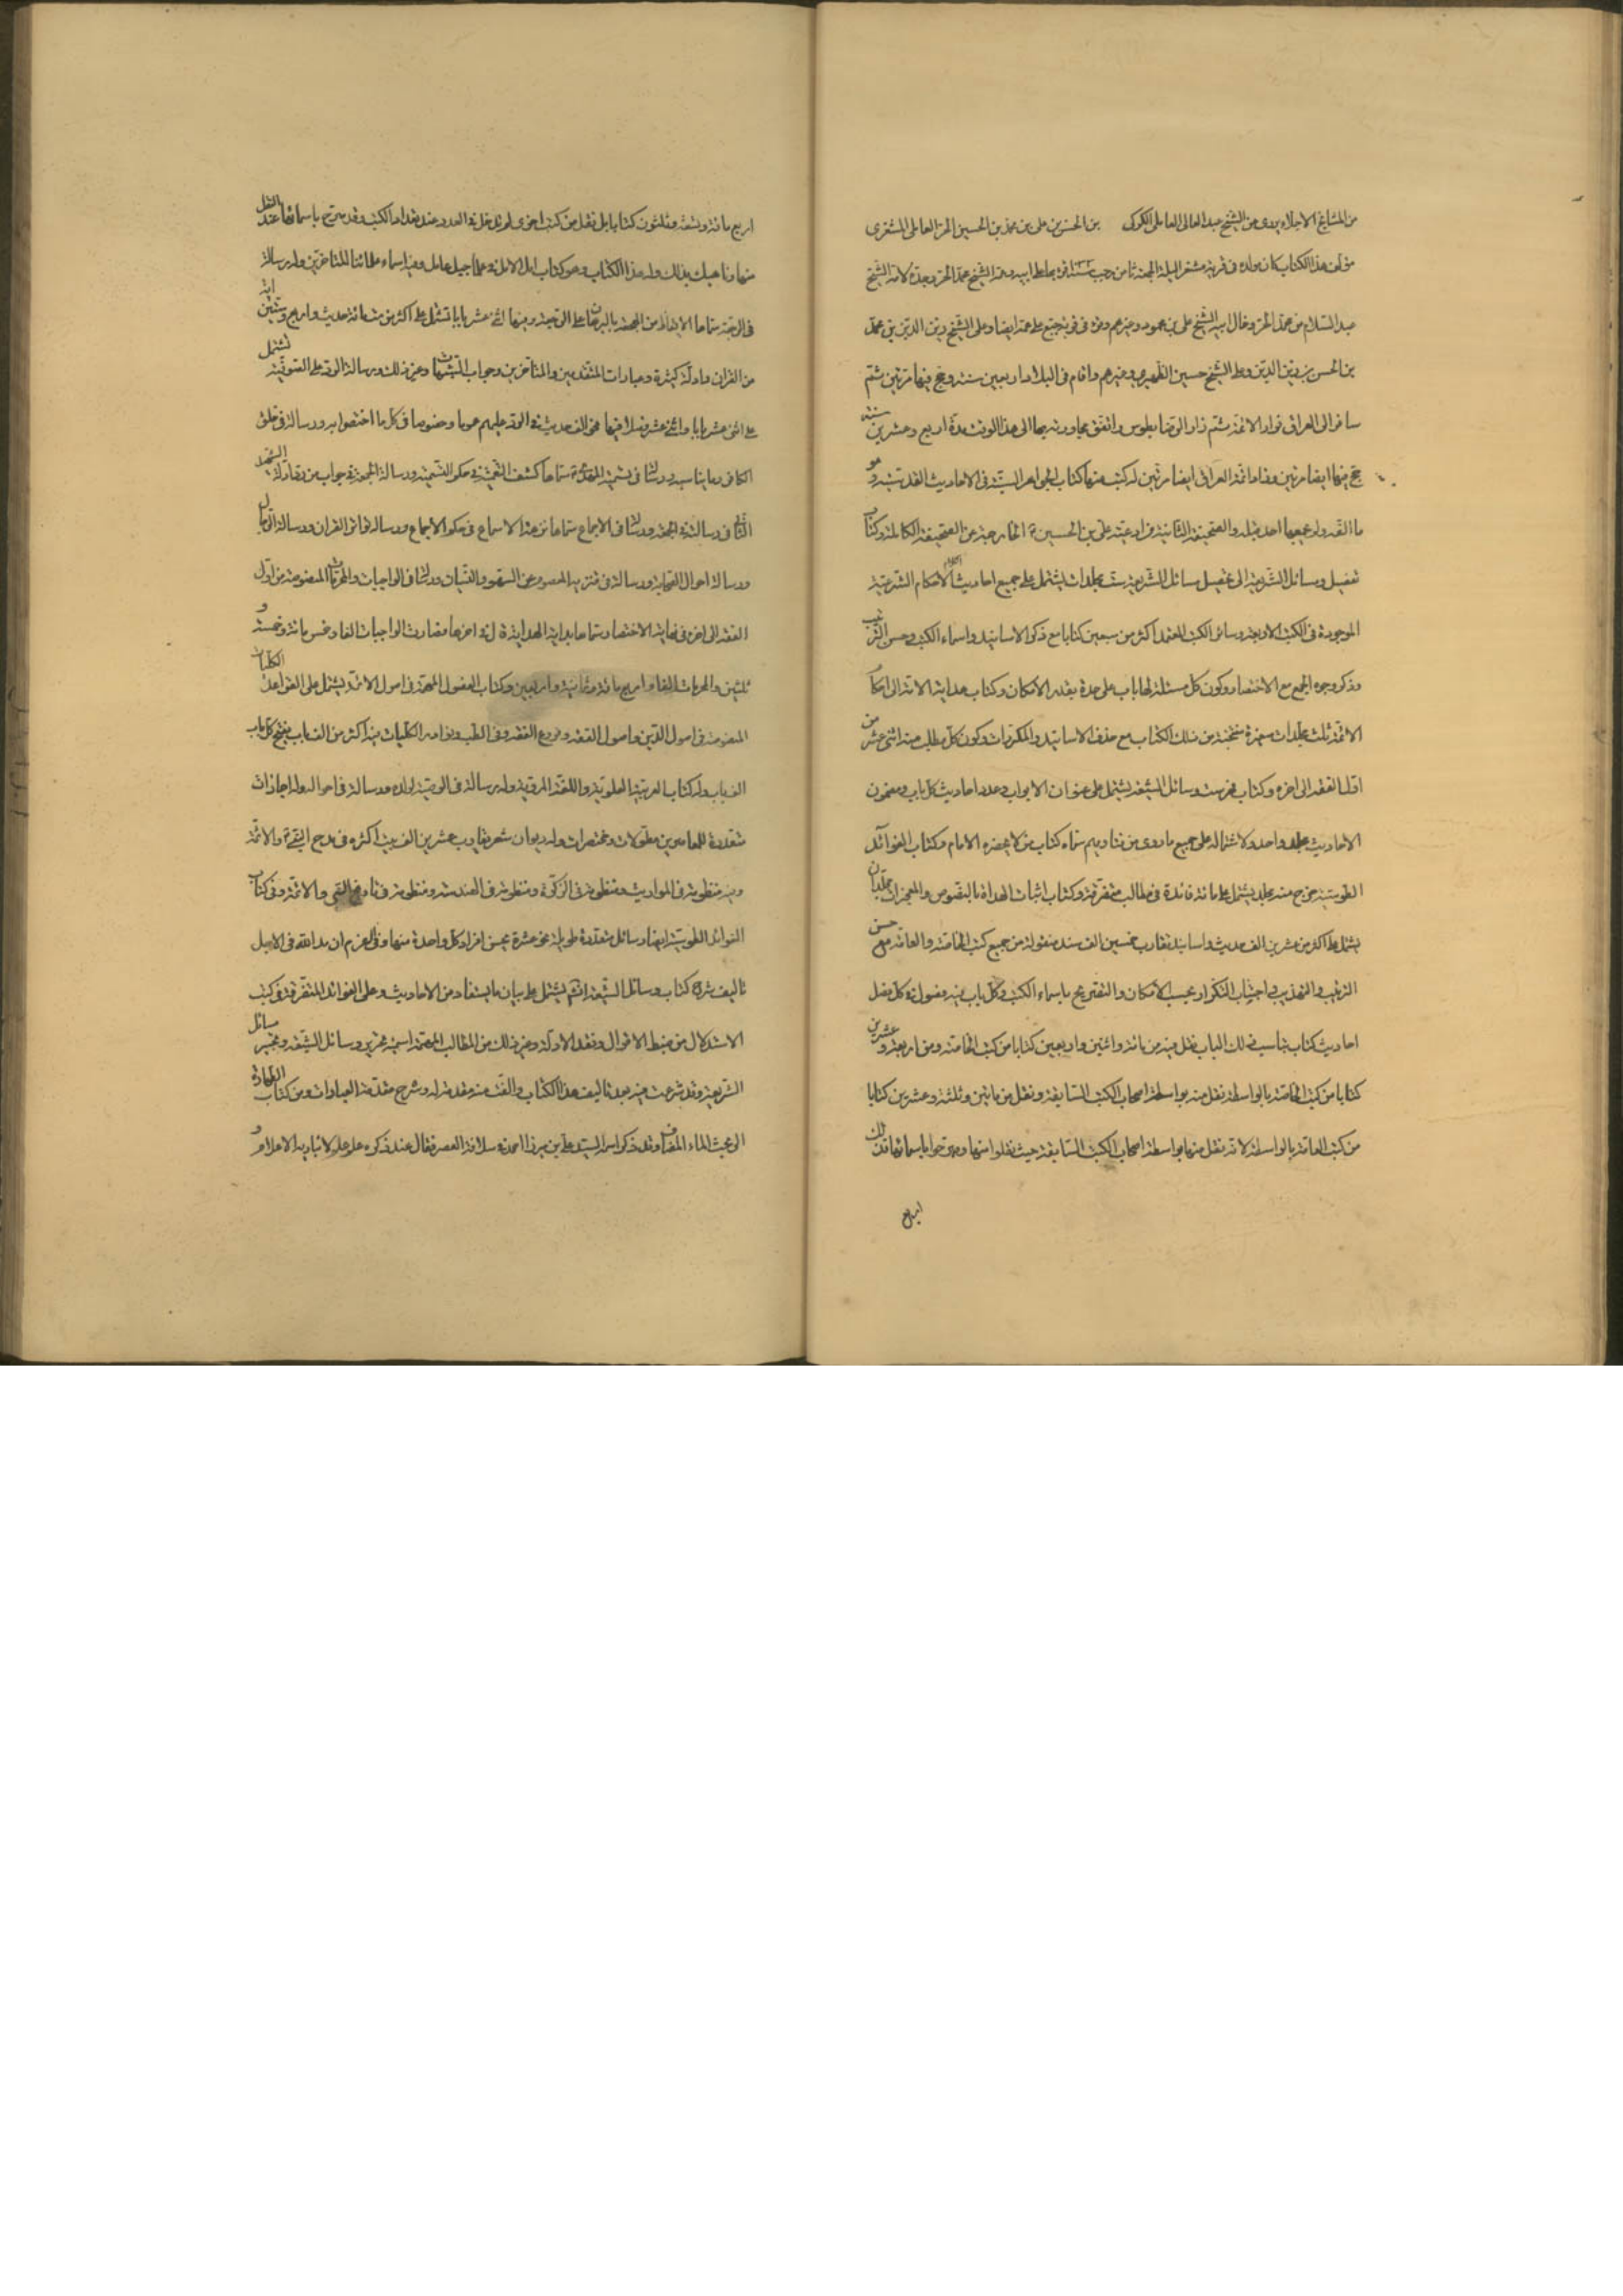 من المشايخ الاجلاء يروى عن الشيخ عبد العالى العاملى الكركى بن الحسن بن على بن محمد بن الحسين الحر العاملى المشغرى
مؤلف هذا الكتاب كان مولده فى قرية مشغر ليلة الجمعة ثامن رجب قرء بها على ابيه وعمه الشيخ محمد الحر وجده لامه الشيخ
عبد السلام بن محمد الحر وخال ابيه الشيخ على بن محمود وغيرهم وقرء فى قرية جبع على عمه ايضا وعلى الشيخ زين الدين بن محمد
بن الحسن بن زين الدين وعلى الشيخ حسين الظهيرى وغيرهم واقام فى البلاد اربعين سنة وحج فيها مرتين ثم
سافر الى العراق فزار الائمة ثم زار الرضا بطوس واتفق مجاورته بها الى هذا الوقت مدة اربع وعشرين سنة
حج فيها ايضا مرتين وزار ائمة العراق ايضا مرتين له كتب منها كتاب الجواهر السنية فى الاحاديث القدسية وهو
ما الفه ولم يجمعها احد قبله والصحيفة الثانية من ادعية على بن الحسين ع الخارجة عن الصحيفة الكاملة وكتاب
تفصيل وسائل الشريعة الى تحصيل مسائل الشريعة ست مجلدات يشتمل على جميع احاديث الاحكام الشرعية
الموجودة فى الكتب الاربعة وسائر الكتب المعتمدة اكثر من سبعين كتابا مع ذكر الاسانيد واسماء الكتب وحسن الترتيب
وذكر وجوه الجمع مع الاختصار وكون كل مسئلة لها باب على حدة بقدر الامكان وكتاب هداية الامة الى احكام
الائمة ثلث مجلدات صغيرة منتخبة من ذلك الكتاب مع حذف الاسانيد والمكررات وكون كل مطلب منه اثنى عشر من
اول الفقه الى اخره وكتاب فهرست وسائل الشيعة يشتمل على عنوان الابواب وعدد احاديث كل باب ومضمون
الاحاديث مجلد واحد ولاشتماله على جميع ما روى من فتاويهم سماه كتاب من لا يحضره الامام وكتاب الفوائد
الطوسية خرج منه مجلد يشتمل على مائة فائدة فى مطالب متفرقة وكتاب اثبات الهداة بالنصوص والمعجزات مجلدان
يشتمل على اكثر من عشرين الف حديث واسانيد تقارب خمسين الف سند منقولة من جميع كتب الخاصة والعامة مع حسن
الترتيب والتهذيب واجتناب التكرار بحسب الامكان والتصريح باسماء الكتب وكل باب فيه فصول فى كل فصل
احاديث كتاب يناسب ذلك الباب نقل فيه من مائة واثنين واربعين كتابا من كتب الخاصة ومن اربعة وعشرين
كتابا من كتب العامة بلا واسطة نقل منه بواسطة اصحاب الكتب السابقة ونقل من مائتين وثلثة وعشرين كتابا
من كتب العامة بالواسطة لانه نقل منها بواسطة اصحاب الكتب السابقة حيث نقلوا منها وصرحوا باسمائها فذلك
اربع
اربع مائة وتسعة وثلثون كتابا بل نقل من كتب اخرى لم تدخل فى العدد عند تعداد الكتب وقد صرح باسمائها عند النقل
منها وناهيك بذلك وله هذا الكتاب وهو كتاب امل الامل فى علماء جبل عامل وفيه اسماء علمائنا المتاخرين وله رسالة
فى الرجعة سماها الايقاظ من الهجعة بالبرهان على الرجعة وفيها اثنى عشر بابا تشتمل على اكثر من ستمائة حديث واربع وستين اية
من القران وادلة كثيرة وعبارات المتقدمين والمتاخرين وجواب الشبهات وغير ذلك ورسالة الرد على الصوفية تشتمل
على اثنى عشر بابا واثنى عشر فصلا فيها نحو الف حديث فى الرد عليهم عموما وخصوصا فى كل ما اختصوا به ورسالة فى خلق
الكافر وما يناسبه ورسالة فى تسمية المهدى ع سماها كشف التعمية فى حكم التسمية ورسالة الجمعة فى جواب من رد ادلة الشهيد
الثانى فى رسالته فى الجمعة ورسالة فى الاجماع سماها نزهة الاسماع فى حكم الاجماع ورسالة تواتر القران ورسالة الرجال
ورسالة احوال الصحابة ورسالة فى تنزيه المعصوم عن السهو والنسيان ورسالة فى الواجبات والمحرمات المنصوصة من اول
الفقه الى اخره فى نهاية الاختصار سماها بداية الهداية قال فى اخرها فصارت الواجبات الفا وخمس مائة وخمسة و
ثلثين والمحرمات الفا واربع مائة وثمانية واربعين وكتاب الفصول المهمة فى اصول الائمة يشتمل على القواعد الكليات
المنصوصة فى اصول الدين واصول الفقه وفروع الفقه وفى الطب ونوادر الكليات فيه اكثر من الف باب يفتح كل باب
الف باب وله كتاب العربية العلوية واللغة المروية وله رسالة فى الوصية لولده ورسالة فى احواله وله اجازات
متعددة للمعاصرين مطولات ومختصرات وله ديوان شعر يقارب عشرين الف بيت اكثره فى مدح النبى ص والائمة
وفيه منظومة فى المواريث ومنظومة فى الزكوة ومنظومة فى الهندسة ومنظومة فى تاريخ النبى والائمة وفى كتاب
الفوائد الطوسية ايضا رسائل متعددة طويلة نحو عشرة يحسن افراد كل واحدة منها وفى العزم ان مد الله فى الاجل
تاليف شرح كتاب وسائل الشيعة انشم يشتمل على بيان ما يستفاد من الاحاديث وعلى الفوائد المتفرقة فى كتب
الاستدلال من ضبط الاقوال ونقد الادلة وغير ذلك من المطالب المهمة اسميه تحرير وسائل الشيعة وتحبير مسائل
الشريعة وقد شرعت فيه بعد تاليف هذا الكتاب والفت منه مقدمة له وشرح مقدمة العبادات ومن كتاب الطهارة
الى بحث الماء المضاف وقد ذكر اسمه السيد على بن ميرزا احمد فى سلافة العصر فقال عند ذكره علم علم لا تباريه الاعلام و